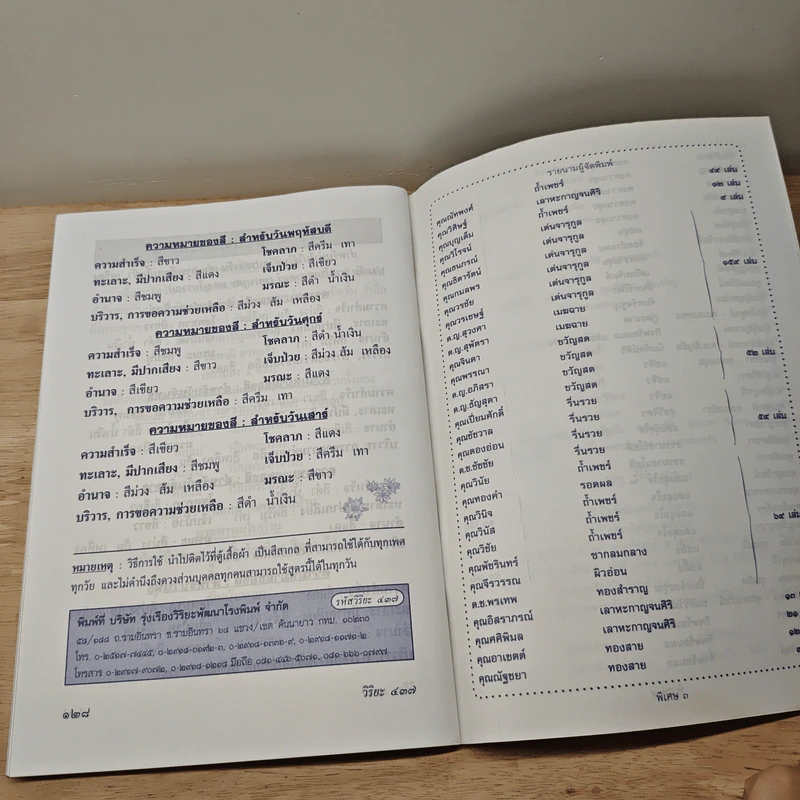 ความหมายของสี : สำหรับวันพฤหัสบดี
ความสำเร็จ : สีขาว โชคลาภ : สีครีม เทา
ทะเลาะ, มีปากเสียง : สีแดง เจ็บป่วย : สีเขียว
อำนาจ : สีชมพู มรณะ : สีดำ น้ำเงิน
บริวาร, การขอความช่วยเหลือ : สีม่วง ส้ม เหลือง
ความหมายของสี : สำหรับวันศุกร์
ความสำเร็จ : สีชมพู โชคลาภ : สีดำ น้ำเงิน
ทะเลาะ, มีปากเสียง : สีขาว เจ็บป่วย : สีม่วง ส้ม เหลือง
อำนาจ : สีเขียว มรณะ : สีแดง
บริวาร, การขอความช่วยเหลือ : สีครีม เทา
ความหมายของสี : สำหรับวันเสาร์
ความสำเร็จ : สีเขียว โชคลาภ : สีแดง
ทะเลาะ, มีปากเสียง : สีชมพู เจ็บป่วย : สีครีม เทา
อำนาจ : สีม่วง ส้ม เหลือง มรณะ : สีขาว
บริวาร, การขอความช่วยเหลือ : สีดำ น้ำเงิน
หมายเหตุ : วิธีการใช้ นำไปติดไว้ที่ตู้เสื้อผ้า เป็นสีสากล ที่สามารถใช้ได้กับทุกเพศ
ทุกวัย และไม่คำนึงถึงดวงส่วนบุคคลทุกคนสามารถใช้สูตรนี้ได้ในทุกวัน
พิมพ์ที่ บริษัท รุ่งเรืองวิริยะพัฒนาโรงพิมพ์ จำกัด รหัสวิริยะ ๔๓๗
๕๘/๑๘๘ ถ.รามอินทรา ซ.รามอินทรา ๖๘ แขวง/เขต คันนายาว กทม. ๑๐๒๓๐
โทร. ๐-๒๕๑๗-๗๔๔๕, ๐-๒๙๑๘-๐๑๙๒-๓, ๐-๒๙๑๘-๑๓๓๖-๙, ๐-๒๙๑๘-๑๑๗๑-๒
โทรสาร ๐-๒๙๑๗-๙๐๗๒, ๐-๒๙๑๘-๑๒๑๘ มือถือ
วิริยะ ๔๓๗
๑๒๘
รายนามผู้จัดพิมพ์
คุณณัทพงศ์ ถ้ำเพชร์ ๔๙ เล่ม
คุณวิศิษฎ์ เลาหะกาญจนศิริ ๑๒ เล่ม
คุณบุญเติม ถ้ำเพชร์ ๙ เล่ม
คุณวิโรจน์ เด่นจารุกูล
คุณธนภรณ์ เด่นจารุกูล
คุณธิดารัตน์ เด่นจารุกูล
คุณกมลพร เด่นจารุกูล ๑๕๙ เล่ม
คุณวรชัย เด่นจารุกูล
คุณวรเชษฐ์ เมฆฉาย
ด.ญ.สุวงศา เมฆฉาย
ด.ญ.สุพัตรา ขวัญสด
คุณจินดา ขวัญสด ๕๒ เล่ม
คุณพรรณา ขวัญสด
ด.ญ.อภิสรา ขวัญสด
ด.ญ.ธัญสุตา รื่นรวย
คุณเปี่ยมศักดิ์ รื่นรวย ๕๙ เล่ม
คุณชัชวาล รื่นรวย
คุณตองอ่อน รื่นรวย
ด.ช.ชัยชัย ถ้ำเพชร์
คุณวินัย รอดผล
คุณทองคำ ถ้ำเพชร์
คุณวินิจ ถ้ำเพชร์ ๖๔ เล่ม
คุณวินัส ถ้ำเพชร์
คุณวิชัย ซากลมกลาง
คุณพัชรินทร์ ผิวอ่อน
คุณจีรวรรณ ทองสำราญ
ด.ช.พรเทพ เลาหะกาญจนศิริ ๑๓
คุณอิสราภรณ์ เลาหะกาญจนศิริ ๒๑
คุณศศิพิมล ทองสาย
คุณอาเขตต์ ทองสาย
คุณณัฐชยา
พิเศษ ๓